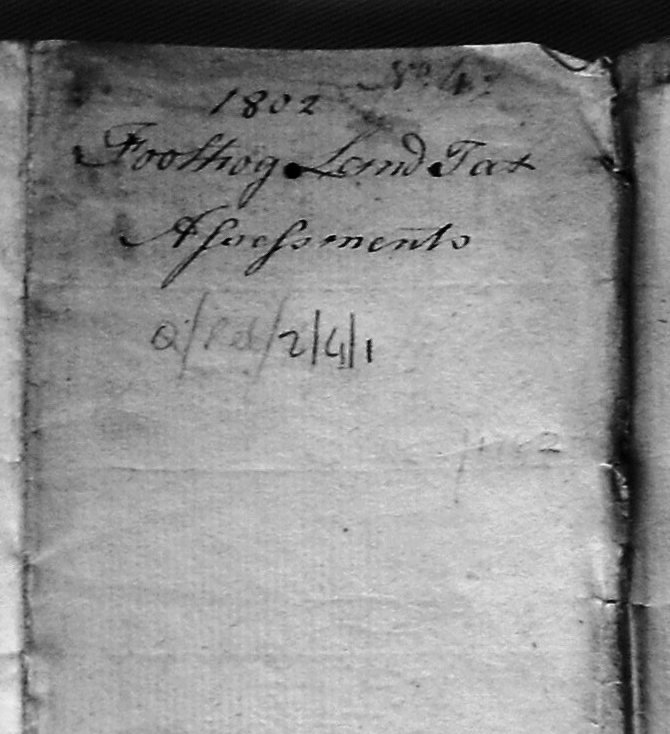 No. 4.
1802
Foolhog Land Tax
Assessments
Q/Rel/2/4/1